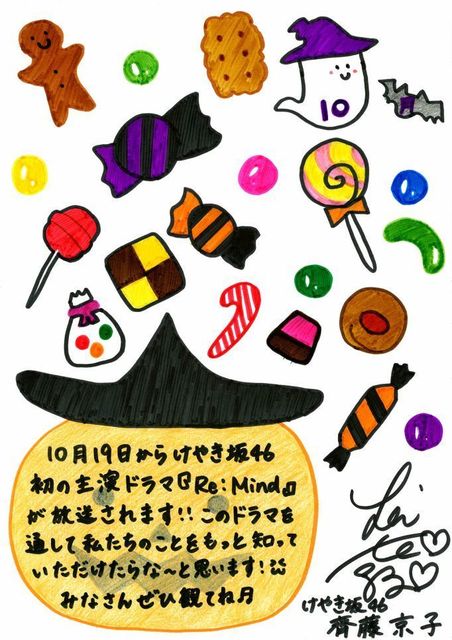 10
10月19日からけやき坂46
初の主演ドラマ『Re:Mind』
が放送されます!!このドラマを
通して私たちのことをもっと知って
いただけたらな〜と思います!
みなさんぜひ観てね
けやき坂46
齊藤 京子